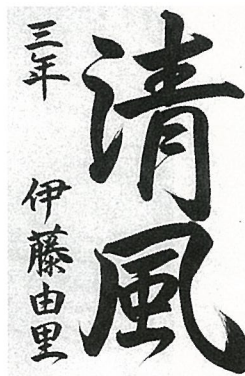 清風
三年 伊藤由里